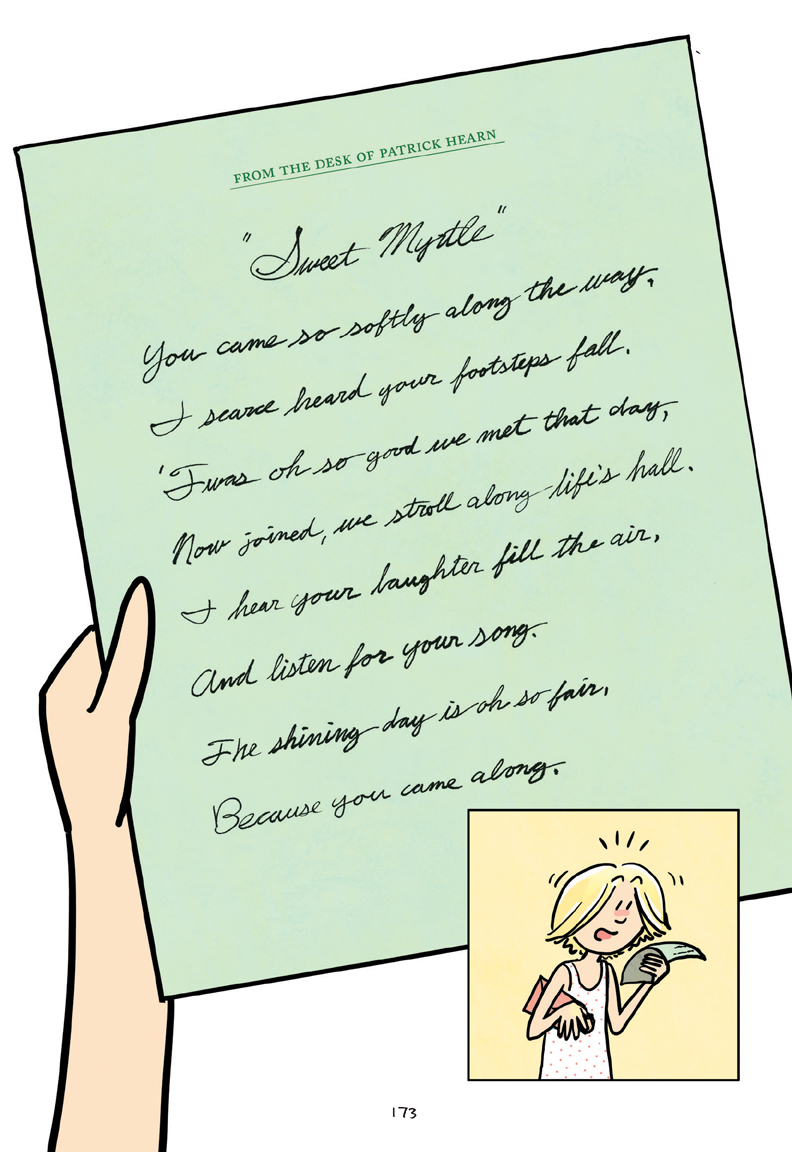 FROM THE DESK OF PATRICK HEARN
"Sweet Myrtle"
You came so softly along the way,
I scarce heard your footsteps fall.
'Twas oh so good we met that day,
Now joined, we stroll along life's hall.
I hear your laughter fill the air,
And listen for your song.
The shining day is oh so fair,
Because you came along.
173